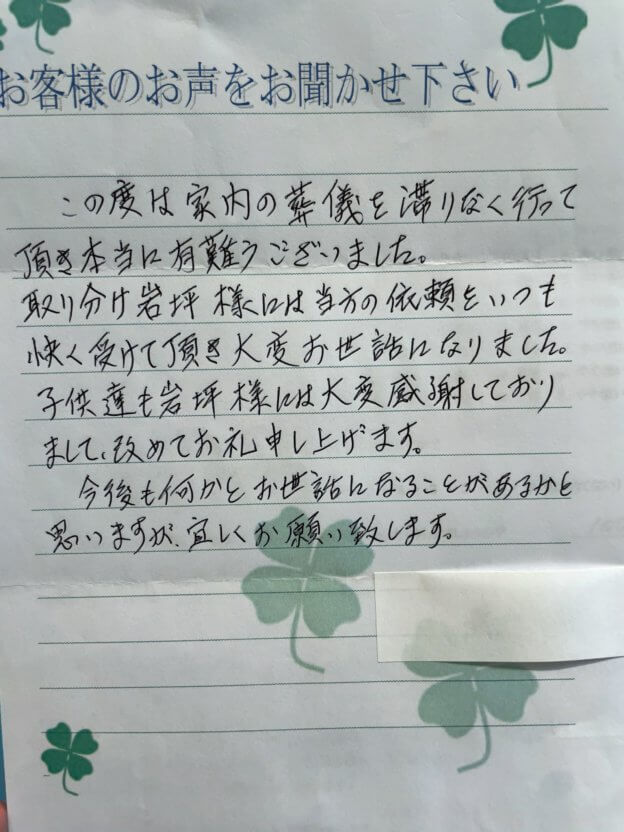 お客様のお声をお聞かせ下さい
この度は家内の葬儀を滞りなく行って
頂き本当に有難うございました。
取り分け岩坪様には当方の依頼をいつも
快く受けて頂き大変お世話になりました。
子供達も岩坪様には大変感謝しており
まして、改めてお礼申し上げます。
今後も何かとお世話になることがあるかと
思いますが、宜しくお願い致します。